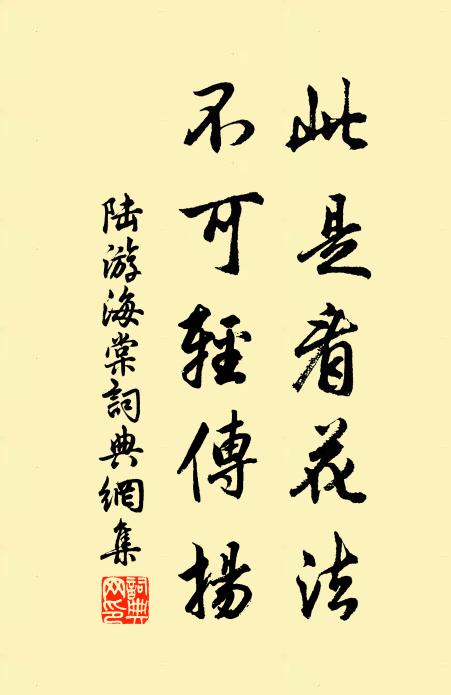 此是看花法
不可輕傳揚
陸游海棠詞典網集